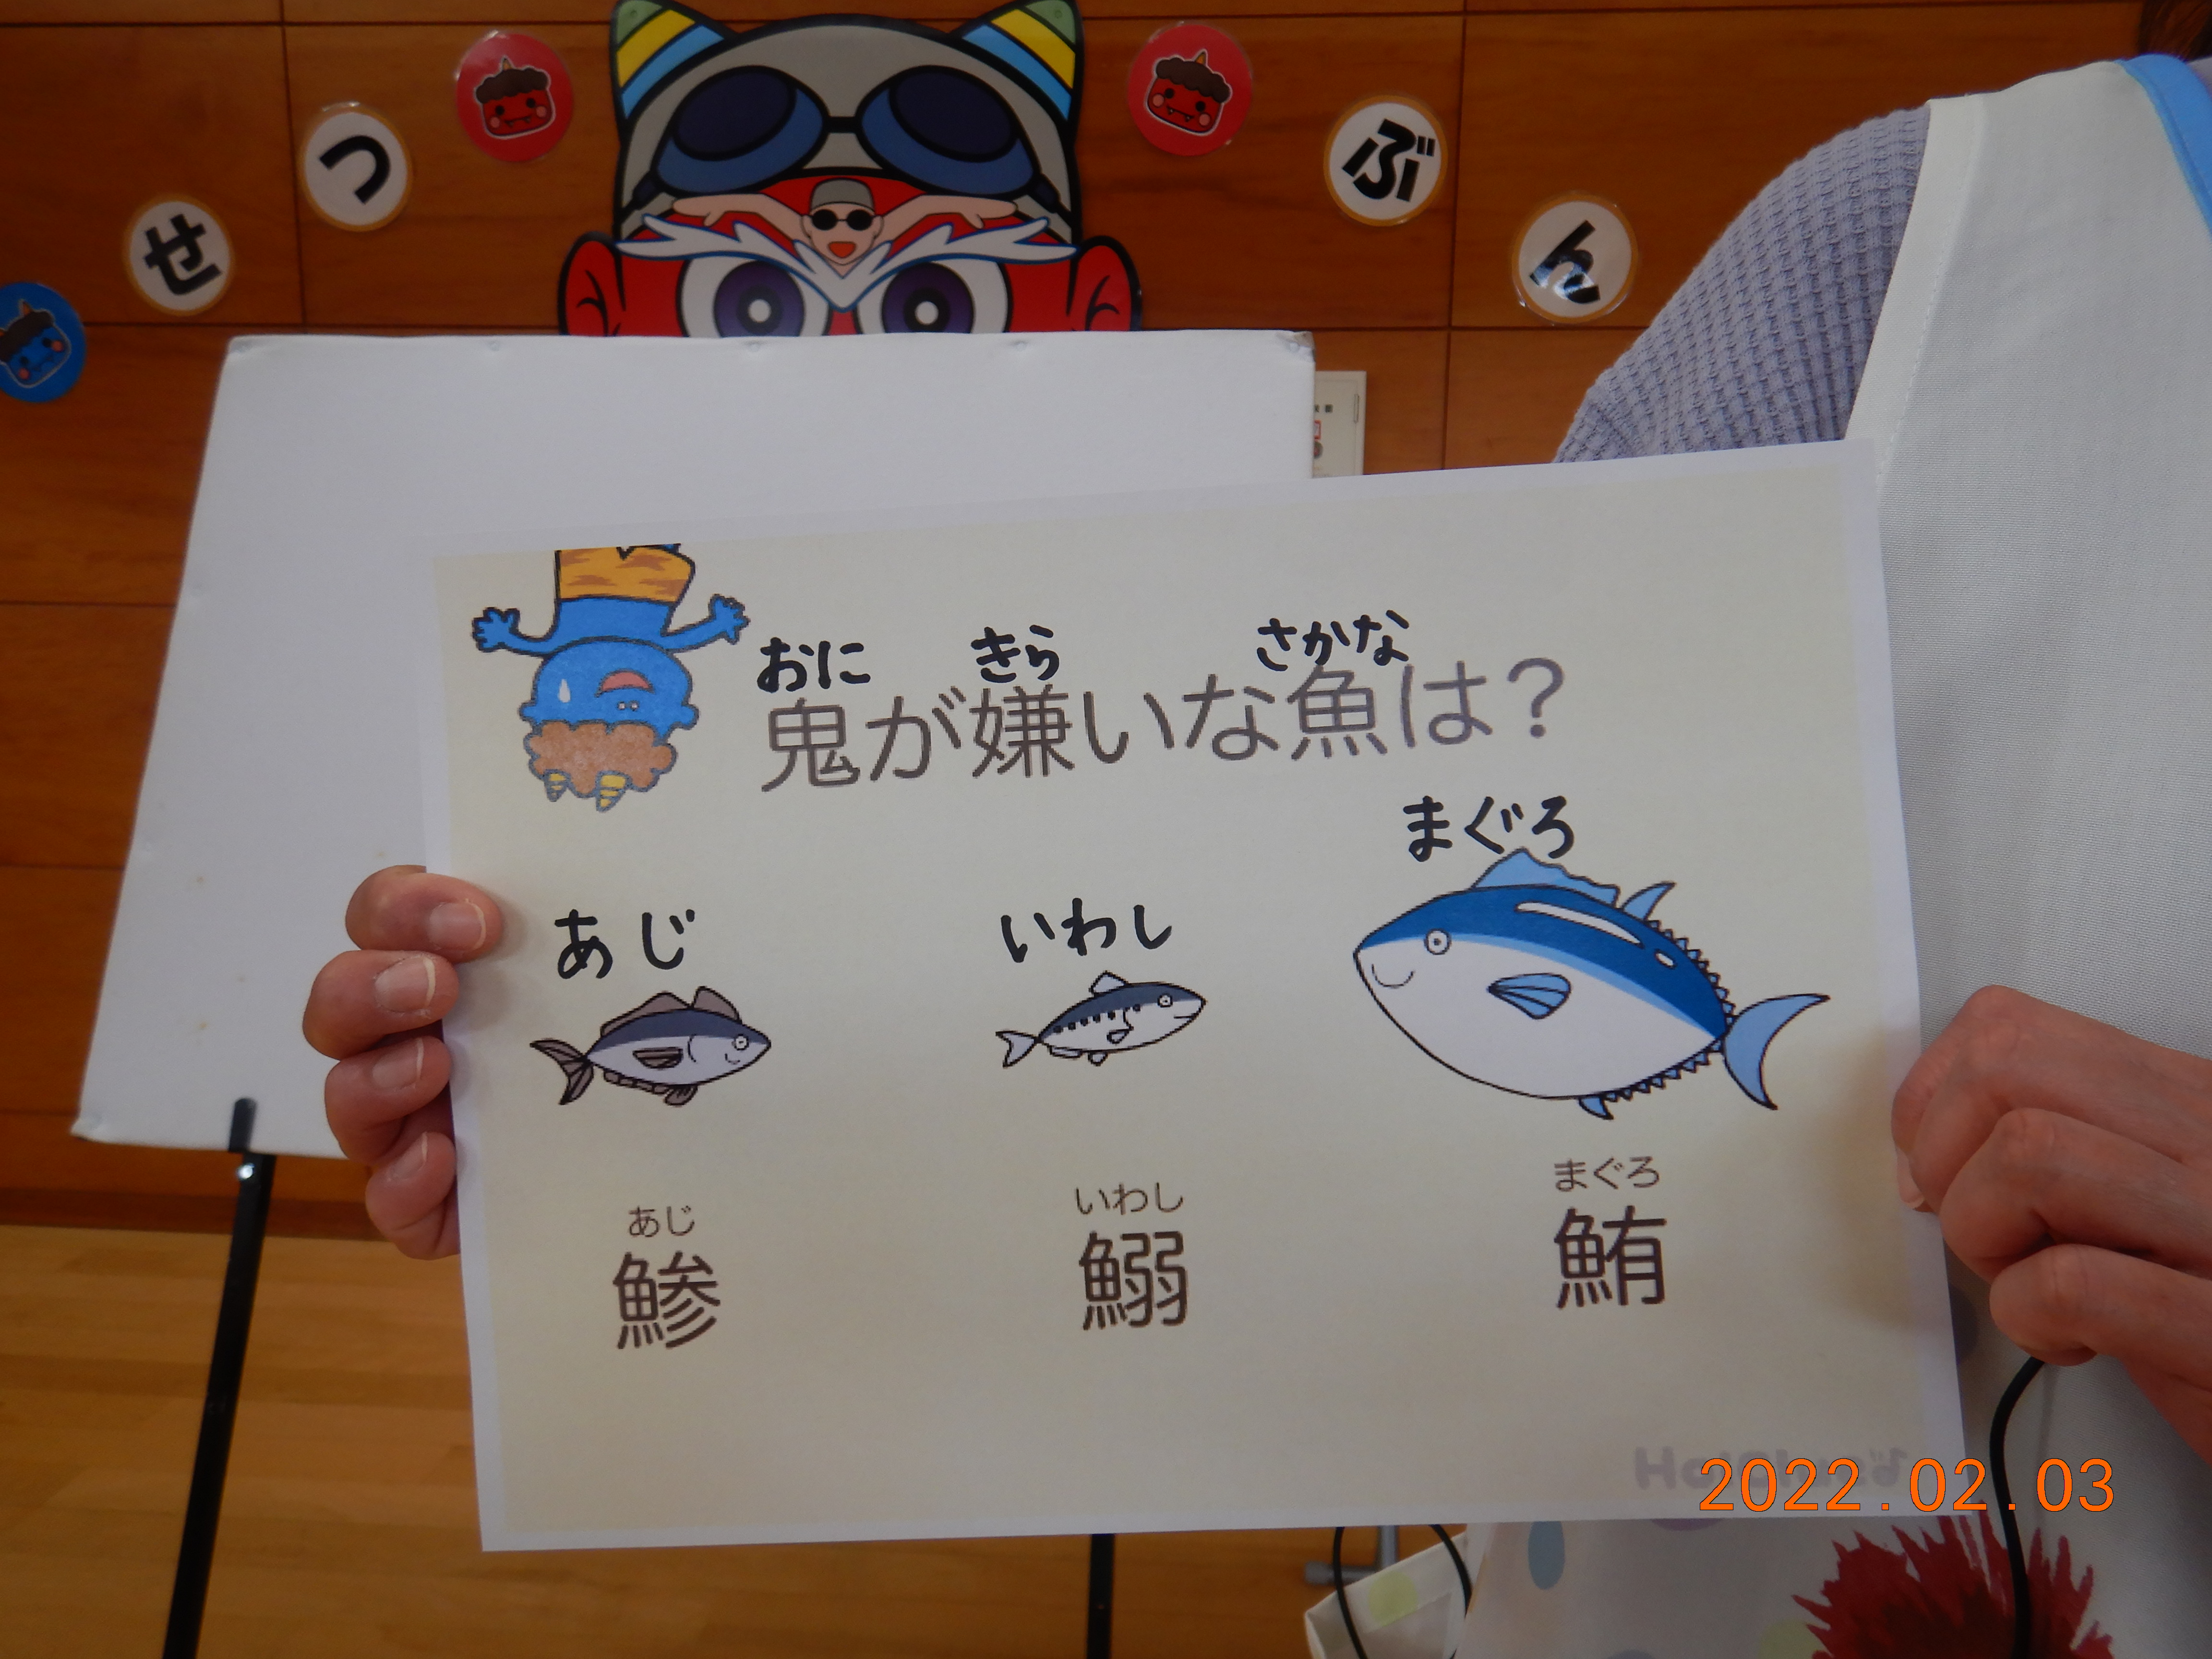 せつぶん
おに きら さかな
鬼が嫌いな魚は?
あじ いわし まぐろ
あじ いわし まぐろ
鯵 鰯 鮪
2022.02.03